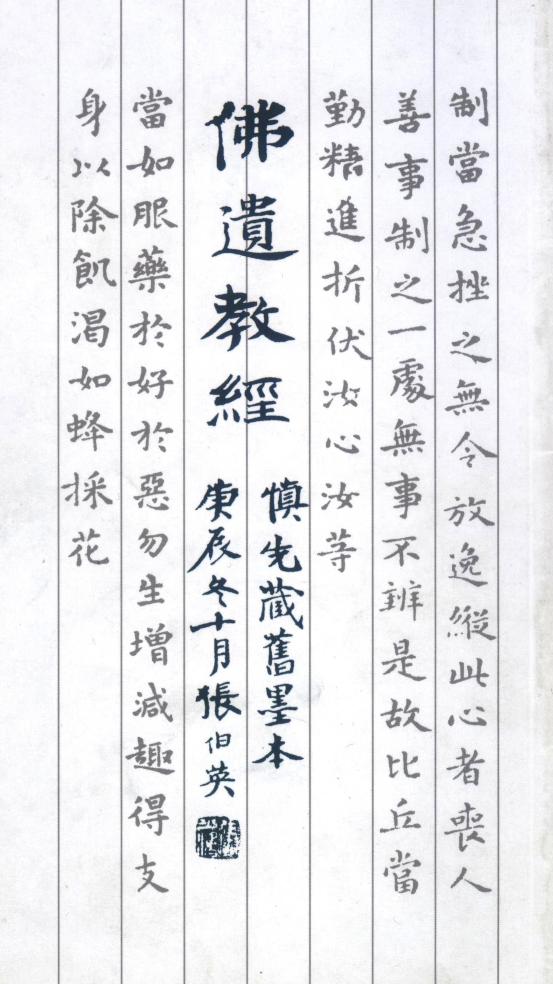 制當急挫之無令放逸縱此心者喪人
善事制之一處無事不辨是故比丘當
勤精進折伏汝心汝等
佛遺教經
慎先藏舊墨本
庚辰冬十月張伯英
當如服藥於好於惡勿生增減趣得支
身以除飢渴如蜂採花